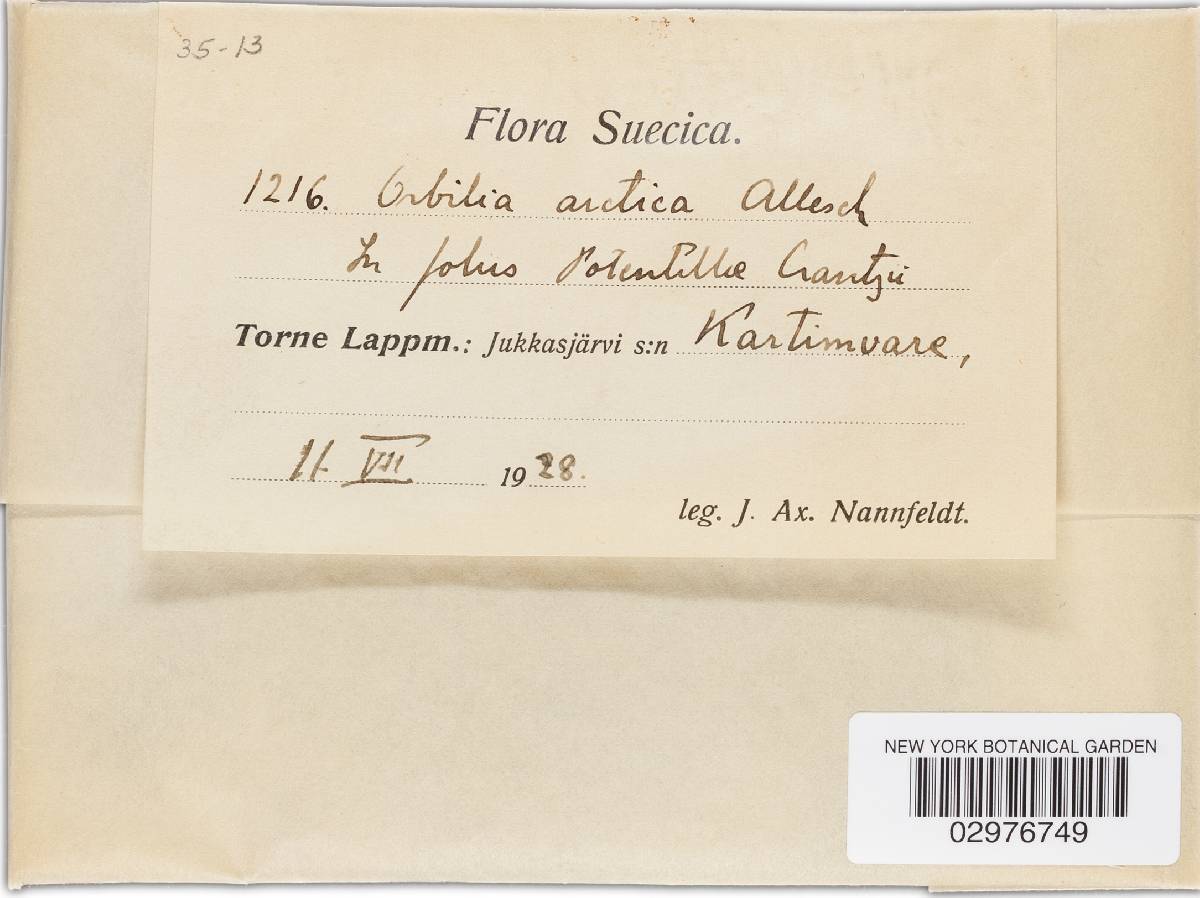 35-13
Flora Suecica.
1216. Orbilia arctica Allesch
In foliis Potentillæ Crantzii
Torne Lappm.: Jukkasjärvi s:n Kartimvare,
11 VII 1928.
leg. J. Ax. Nannfeldt.
NEW YORK BOTANICAL GARDEN
02976749